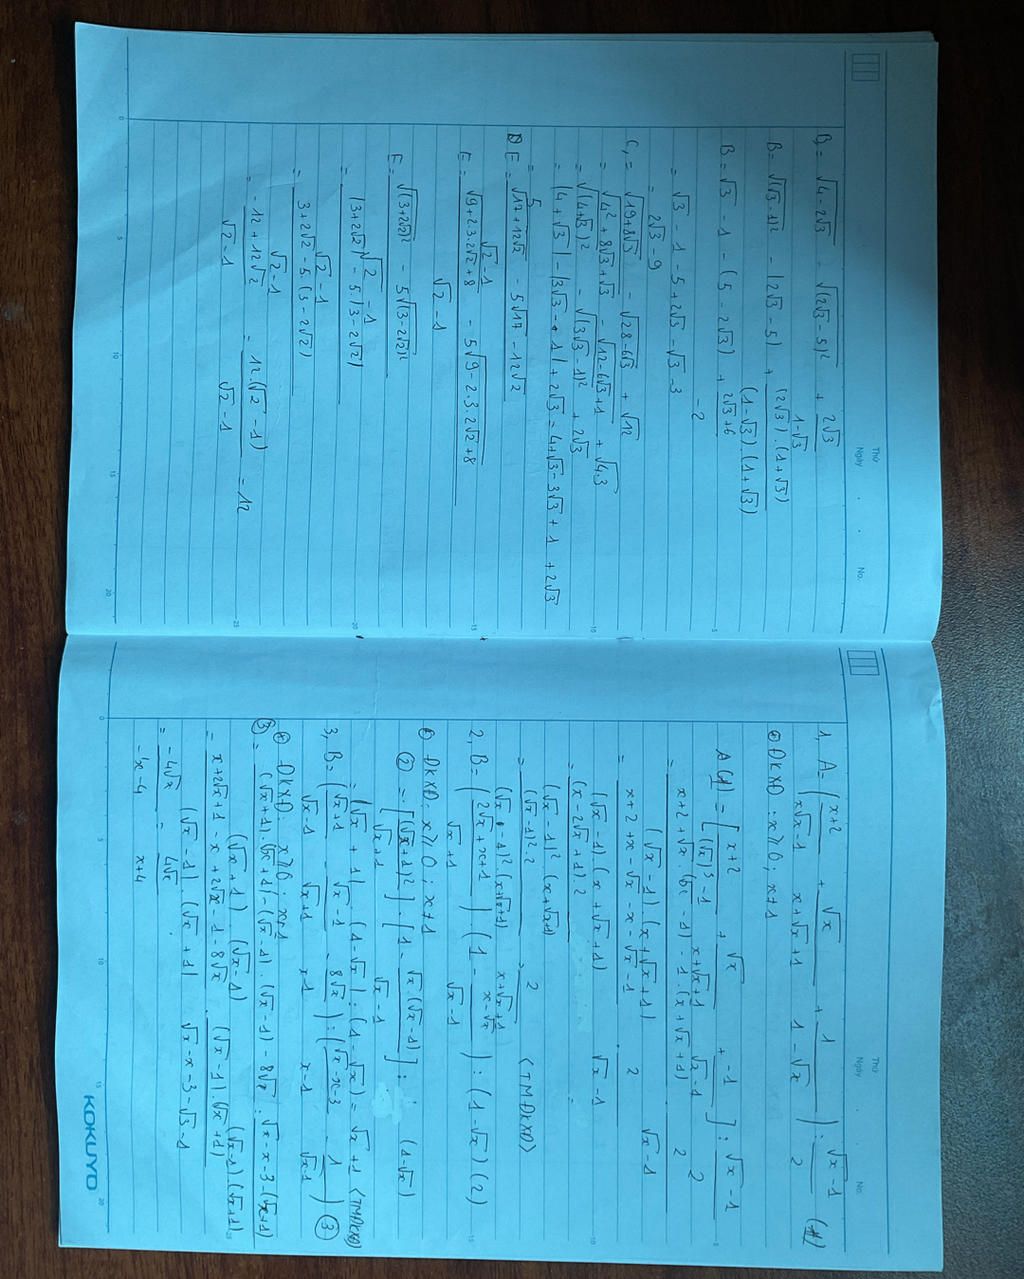 Thứ
Ngày . . No.
B, = √(4-2√3) - √((2√3-5)²) + 2√3/(1-√3)
B = √((√3-1)²) - |2√3-5| + (2√3).(1+√3)/((1-√3).(1+√3))
B = √3 - 1 - (5 - 2√3) + (2√3+6)/(-2)
= √3 - 1 - 5 + 2√3 - √3 - 3
= 2√3 - 9
C, = √(19+8√3) - √(28-6√3) + √12
= √(4²+8√3+√3) - √(12-6√3+1) + √(4.3)
= √((4+√3)²) - √((3√3-1)²) + 2√3
= |4+√3| - |3√3-1| + 2√3 = 4+√3-3√3+1+2√3
= 5
E = (√(17+12√2) - 5√(17-12√2))/(√2-1)
E = (√(9+2.3.2√2+8) - 5√(9-2.3.2√2+8))/(√2-1)
E = (√((3+2√2)²) - 5√((3-2√2)²))/(√2-1)
= (|3+2√2| - 5|3-2√2|)/(√2-1)
= (3+2√2-5.(3-2√2))/(√2-1)
= (-12+12√2)/(√2-1) = 12.(√2-1)/(√2-1) = 12
Thứ
Ngày . . No.
1, A = ((x+2)/(x√x-1) + √x/(x+√x+1) + 1/(1-√x)) : (√x-1)/2 (#)
ĐKXĐ: x ⩾ 0; x ≠ 1
A(#) = [(x+2)/((√x)³-1) + √x/(x+√x+1) + -1/(√x-1)] : (√x-1)/2
= (x+2+√x.(√x-1)-1.(x+√x+1))/((√x-1).(x+√x+1)) . 2/(√x-1)
= (x+2+x-√x-x-√x-1)/((√x-1).(x+√x+1)) . 2/(√x-1)
= (x-2√x+1).2/((√x-1)².(x+√x+1))
= (√x-1)².2/((√x-1)².(x+√x+1)) = 2/(x+√x+1) <TMĐKXĐ>
2, B = ((2√x+x+1)/(√x+1)) (1 - (x-√x)/(√x-1)) : (1-√x) (2)
ĐKXĐ: x ⩾ 0; x ≠ 1
(2) = [(√x+1)²/(√x+1)] . [1 - √x.(√x-1)/(√x-1)] : (1-√x)
= (√x+1) . (1-√x) : (1-√x) = √x+1 <TMĐKXĐ>
3, B = ((√x+1)/(√x-1) - (√x-1)/(√x+1) - 8√x/(x-1)) : ((√x-x-3)/(x-1) - 1/(√x-1)) (3)
ĐKXĐ: x ⩾ 0; x ≠ 1
(3) = ((√x+1).(√x+1)-(√x-1).(√x-1)-8√x)/((√x+1).(√x-1)) : (√x-x-3-(√x+1))/((√x-1)(√x+1))
= (x+2√x+1-x+2√x-1-8√x)/((√x-1).(√x+1)) . (√x-1).(√x+1)/(√x-x-3-√x-1)
= -4√x/(-x-4) = 4√x/(x+4)
KOKUYO